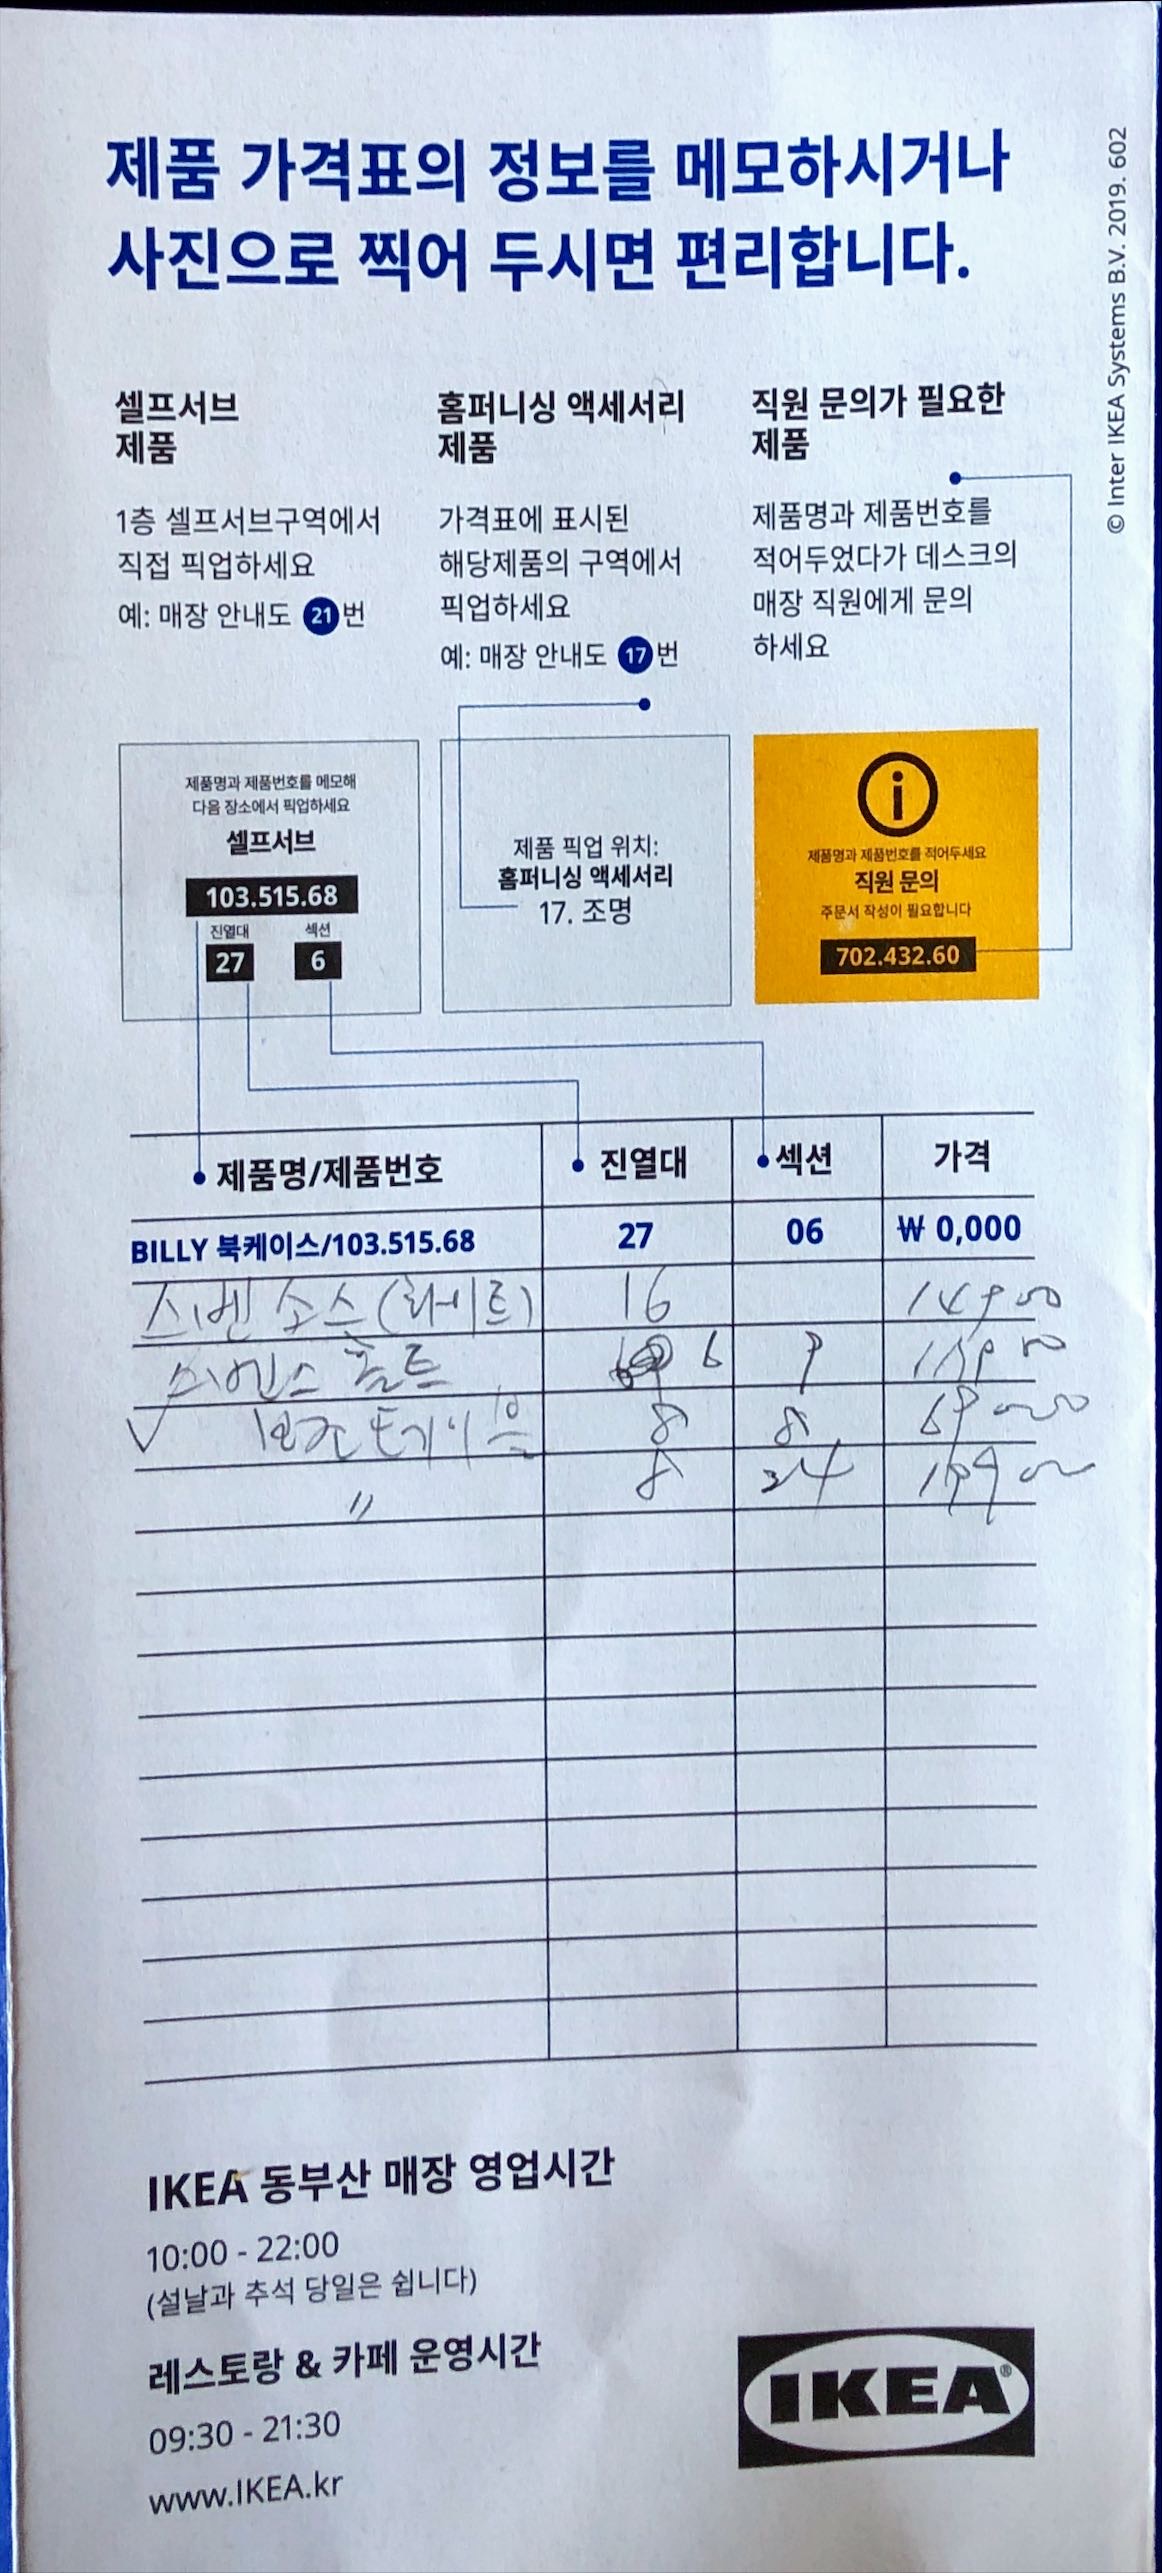 제품 가격표의 정보를 메모하시거나
사진으로 찍어 두시면 편리합니다.
© Inter IKEA Systems B.V. 2019. 602
셀프서브
제품
1층 셀프서브구역에서
직접 픽업하세요
예: 매장 안내도 21번
홈퍼니싱 액세서리
제품
가격표에 표시된
해당제품의 구역에서
픽업하세요
예: 매장 안내도 17번
직원 문의가 필요한
제품
제품명과 제품번호를
적어두었다가 데스크의
매장 직원에게 문의
하세요
제품명과 제품번호를 메모해
다음 장소에서 픽업하세요
셀프서브
103.515.68
진열대 섹션
27 6
제품 픽업 위치:
홈퍼니싱 액세서리
17. 조명
제품명과 제품번호를 적어두세요
직원 문의
주문서 작성이 필요합니다
702.432.60
제품명/제품번호 진열대 섹션 가격
BILLY 북케이스/103.515.68 27 06 ₩ 0,000
16
6 9
8 8
〃 8 24
IKEA 동부산 매장 영업시간
10:00 - 22:00
(설날과 추석 당일은 쉽니다)
레스토랑 & 카페 운영시간
09:30 - 21:30
www.IKEA.kr
IKEA®